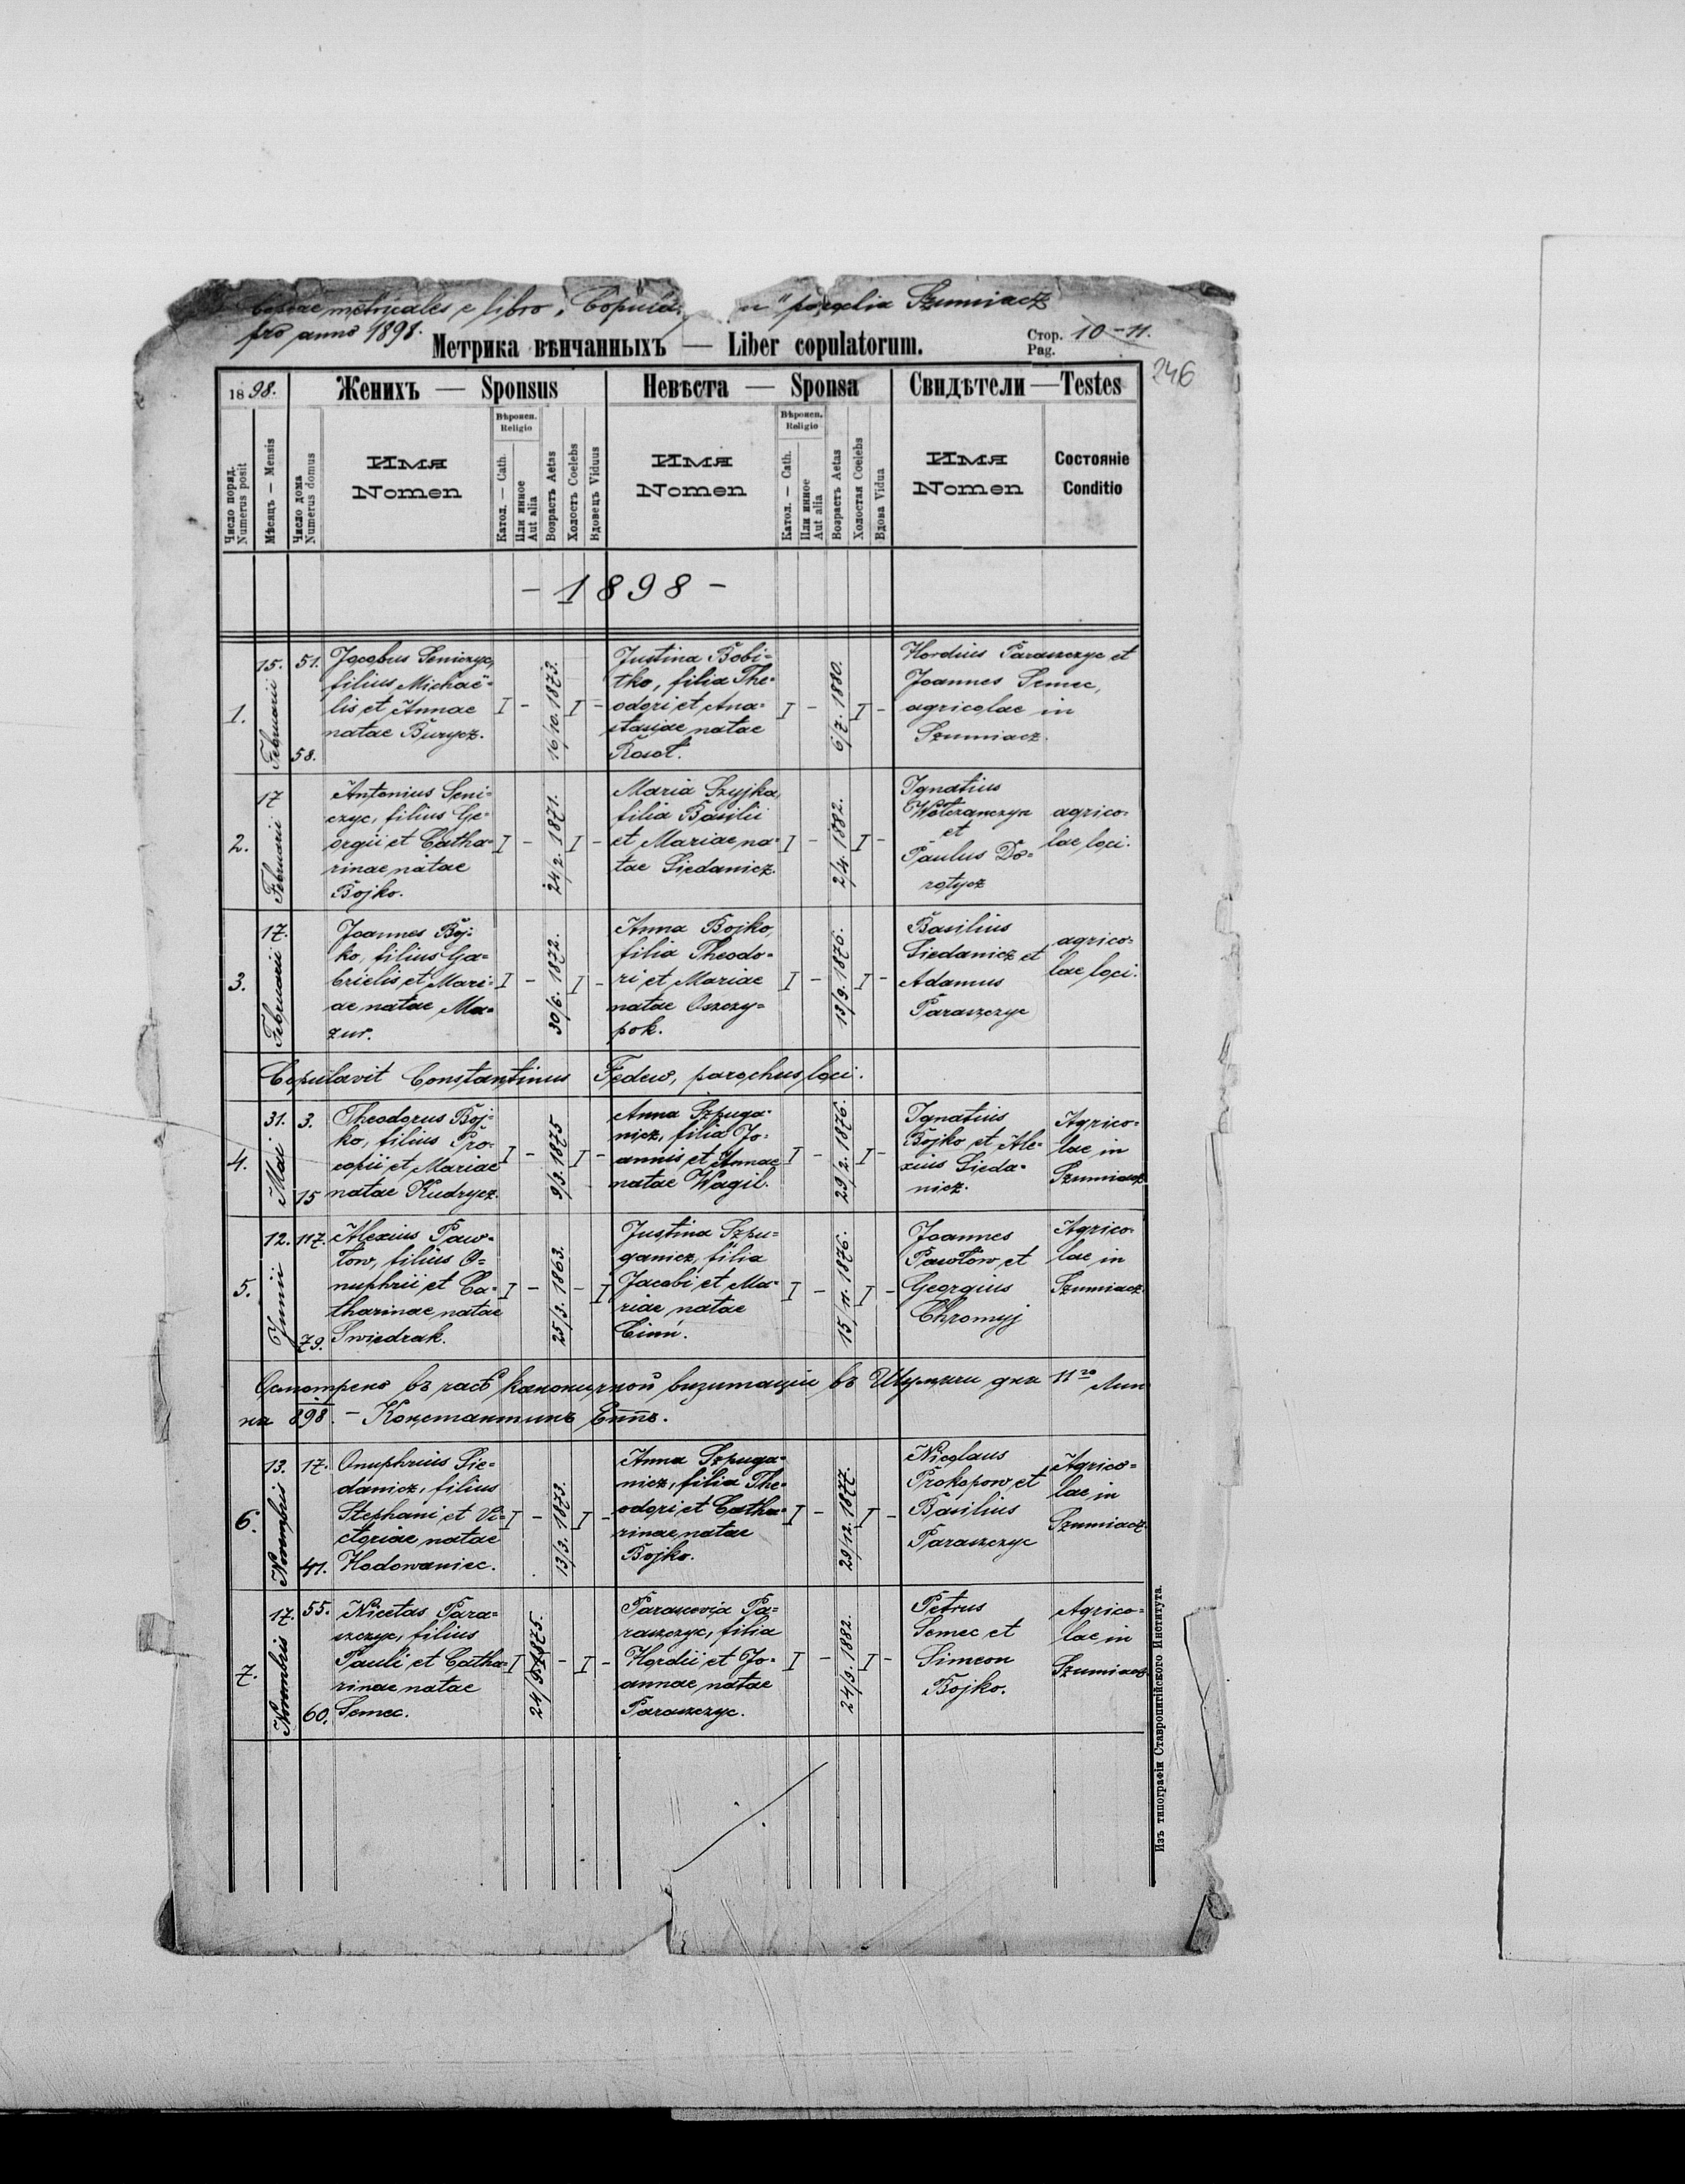 Copiae metricales e libro „Copula n" parochia Szumiacz
pro anno 1898.
Метрика вѣнчанныхъ — Liber copulatorum.
Стор. Pag. 10-11.
246
1898.
Женихъ — Sponsus
Невѣста — Sponsa
Свидѣтели — Testes
Число поряд. Numerus posit
Мѣсяцъ — Mensis
Число дома Numerus domus
Имя Nomen
Вѣроисп. Religio
Катол. — Cath.
Или инное Aut alia
Возрастъ Aetas
Холостъ Coelebs
Вдовецъ Viduus
Имя Nomen
Вѣроисп. Religio
Катол. — Cath.
Или инное Aut alia
Возрастъ Aetas
Холостая Coelebs
Вдова Vidua
Имя Nomen
Состояніе Conditio
- 1898 -
1.
15. Februarii
51.
58.
Jacobus Seniczyc,
filius Michaë-
lis et Annae
natae Burycz.
I - 16/10. 1873. I -
Justina Bobi-
tko, filia The-
odori et Ana-
stasiae natae
Rosoł.
I - 6/7. 1880. I -
Hordius Paraszczyc et
Joannes Semec,
agricolae in
Szumiacz.
2.
17 Februarii
Antonius Seni-
czyc, filius Ge-
orgii et Catha-
rinae natae
Bojko.
I - 24/2. 1871. I -
Maria Szyjka,
filia Basilii
et Mariae na-
tae Siedanicz.
I - 2/4. 1882. I -
Ignatius
Wołczanczyn
et
Paulus Do-
rotycz
agrico-
lae loci.
3.
17. Februarii
Joannes Boj-
ko, filius Ga-
brielis et Mari-
ae natae Ma-
zur.
I - 30/6. 1872. I -
Anna Bojko,
filia Theodo-
ri et Mariae
natae Oszczy-
pok.
I - 13/9. 1876. I -
Basilius
Siedanicz et
Adamus
Paraszczyc
agrico-
lae loci.
Copulavit Constantinus Fedew, parochus loci.
4.
31. Maii
3.
15
Theodorus Boj-
ko, filius Pro-
copii et Mariae
natae Kudrycz.
I - 9/3. 1875 I -
Anna Szpuga-
nicz, filia Jo-
annis et Annae
natae Wagil.
I - 29/2. 1876. I -
Ignatius
Bojko et Ale-
xius Sieda-
nicz.
Agrico-
lae in
Szumiacz
5.
12. Junii
117.
79.
Alexius Paw-
łow, filius O-
nuphrii et Ca-
tharinae natae
Swiedrak.
I - 25/3. 1863. - I
Justina Szpu-
ganicz, filia
Jacobi et Ma-
riae natae
I - 15/11. 1876. I -
Joannes
Pawłow et
Georgius
Chromyj
Agrico-
lae in
Szumiacz.
Осмотрено въ часѣ каноничной визитаціи въ Шумячи дня 11го Лип
на 898. - Константинъ Еппъ.
6.
13. Novembris
17.
41.
Onuphrius Sie-
danicz, filius
Stephani et Vi-
ctoriae natae
Hodowaniec.
I - 13/3. 1873. I -
Anna Szpuga-
nicz, filia The-
odori et Catha-
rinae natae
Bojko.
I - 29/12. 1877. I -
Nicolaus
Prokopow et
Basilius
Paraszczyc
Agrico-
lae in
Szumiacz.
7.
17. Novembris
55.
60.
Nicetas Para-
szczyc, filius
Pauli et Catha-
rinae natae
Semec.
I 24/9. 1875. - I -
Parascevia Pa-
raszczyc, filia
Hordii et Jo-
annae natae
Paraszczyc.
I - 24/9. 1882. I -
Petrus
Semec et
Simeon
Bojko.
Agrico-
lae in
Szumiacz
Изъ типографіи Ставропигійского Института.